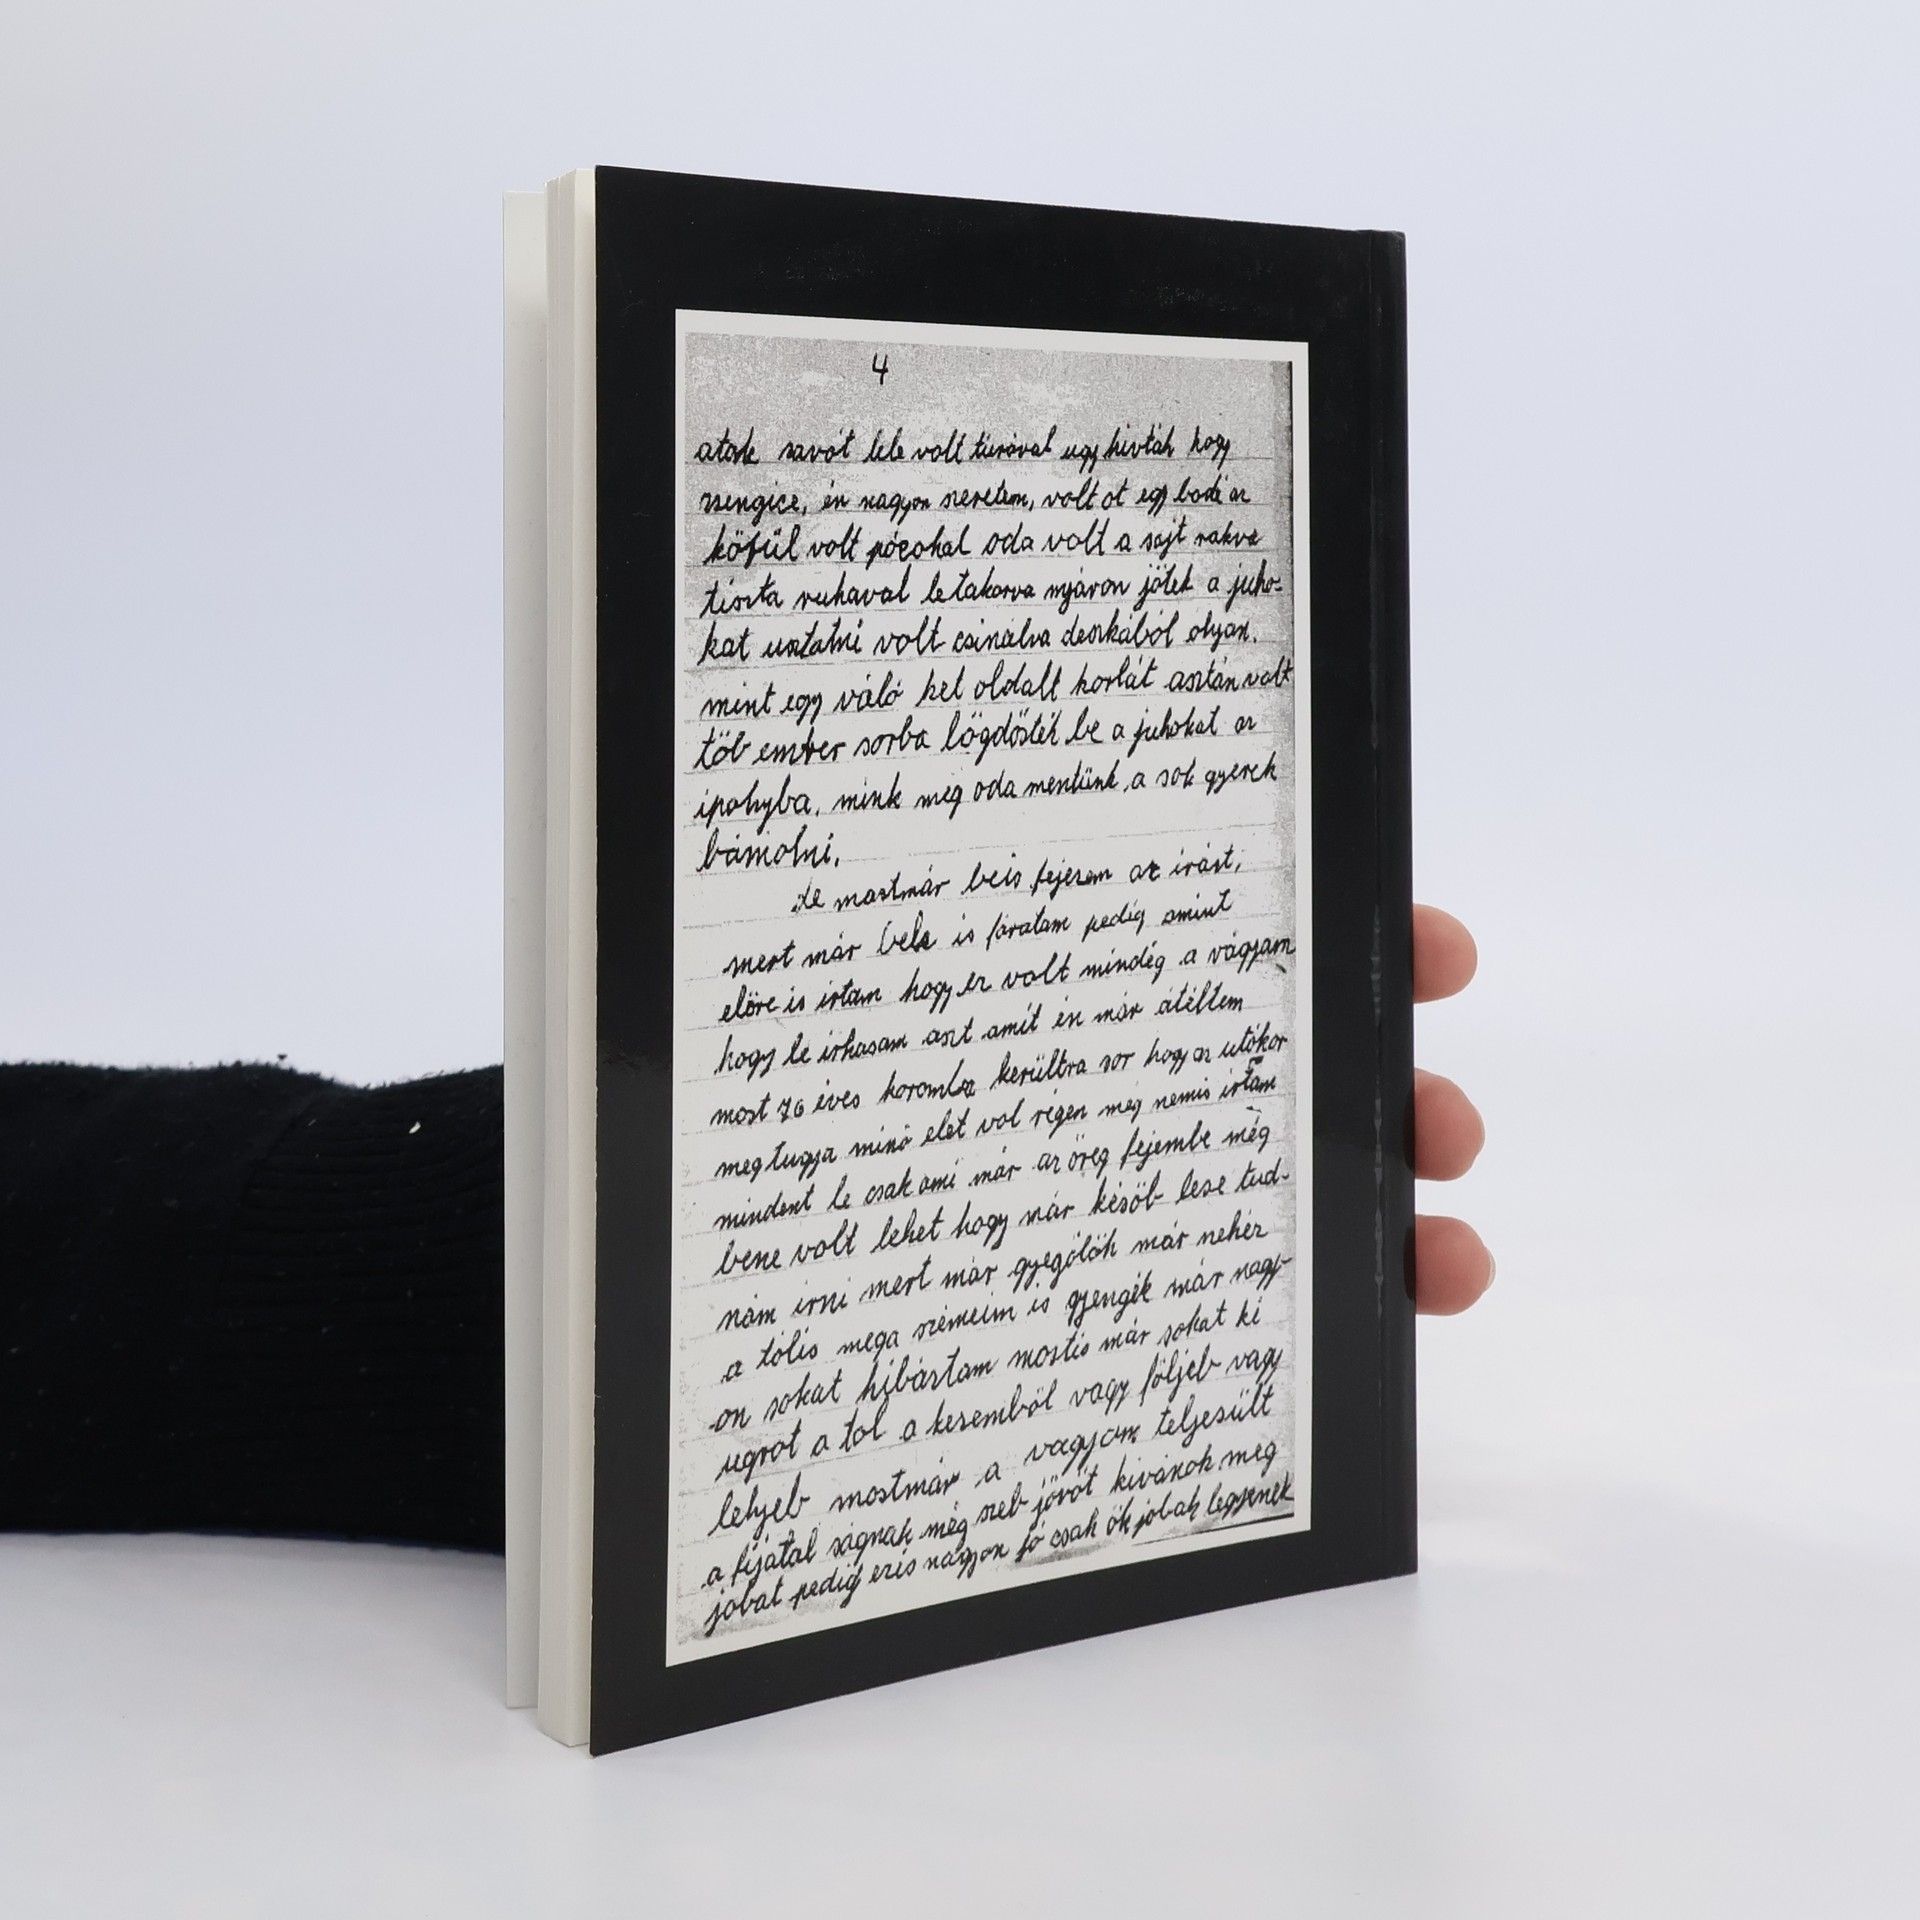 4
atak savót tele volt túróval ugy hivták hogy
zsengice, én nagyon szeretem, volt ot egy bodé az
köfül volt pócokal oda volt a sajt rakva
tiszta ruhaval letakarva nyáron jötek a juho-
kat usztatni volt csinálva deszkából olyan.
mint egy váló két oldalt korlát asztán volt
töb ember sorba lögdösték be a juhokat az
ipolyba. mink meg oda mentünk a sok gyerek
bámolni.
de mostmár beis fejezem az irást,
mert már bele is fáratam pedig amint
elöre is irtam hogy ez volt mindég a vágyam
hogy le irhasam aszt amit én már átéltem
most 76 éves koromba kerültra sor hogy az utókor
megtugya minö élet vol régen még nemis irtam
mindent le csak ami már az öreg fejembe még
bene volt lehet hogy már késöb lese tud-
nám irni mert már gyegölök már nehéz
a tólis mega szémeim is gyengék már nagy-
on sokat hibásztam mostis már sokat ki
ugrot a tol a kezemböl vagy följeb vagy
lelyeb mostmár a vagyam teljesült
a fijatal ságnak még szeb jövöt kivánok meg
jobat pedig ezis nagyon jó csak ök jobak legyenek